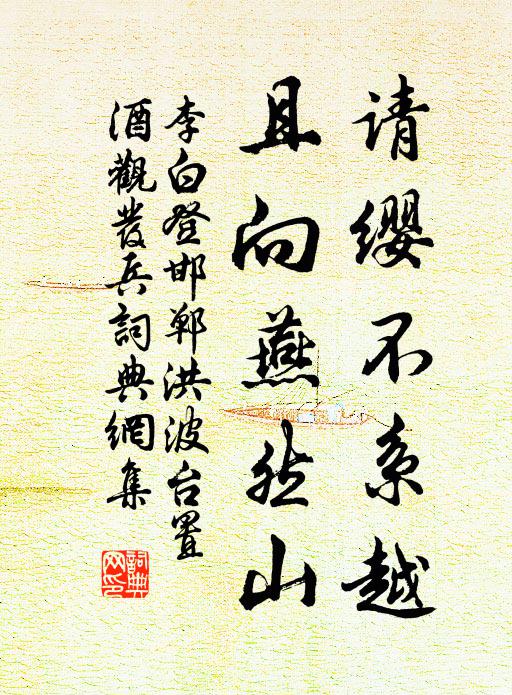 请缨不系越
且向燕然山
李白登邯郸洪波台置
酒觀发兵詞典網集
詞典网印